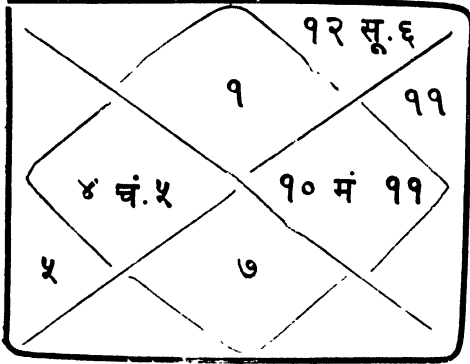 १२ सू.६
१
११
४ चं.५
१० मं ११
५
७